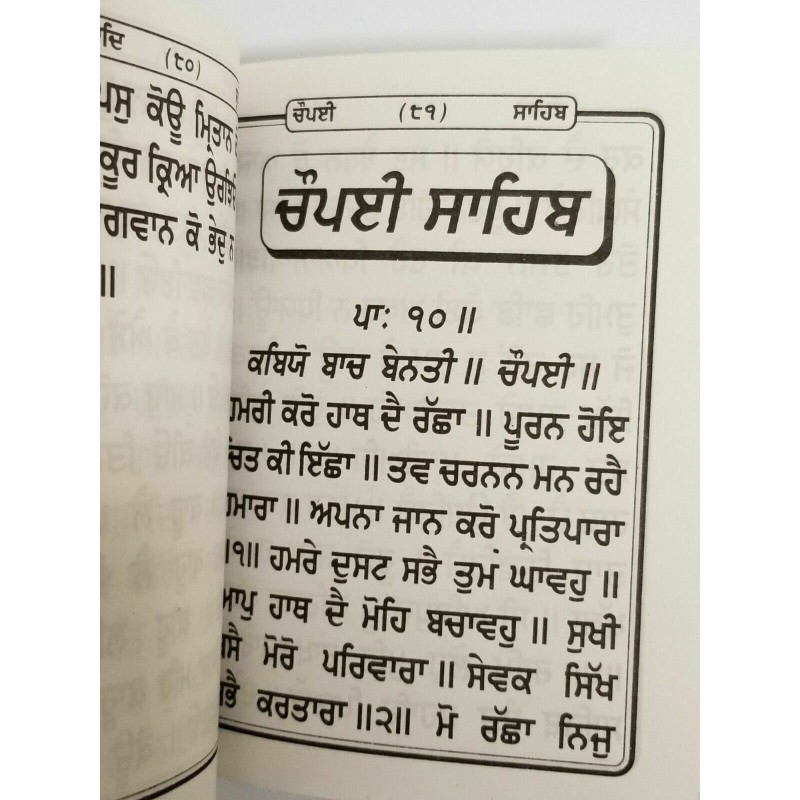 ਦਿ (੯੦)
ਪਸੁ ਕੋਊ ਮ੍ਰਿਤਾਨ
ਕੂਰ ਕ੍ਰਿਆ
ਗਵਾਨ ਕੋ ਭੇਦੁ ਨ
॥
ਚੌਪਈ (੯੧) ਸਾਹਿਬ
ਚੌਪਈ ਸਾਹਿਬ
ਪਾ: ੧੦ ॥
ਕਬਿਯੋ ਬਾਚ ਬੇਨਤੀ ॥ ਚੌਪਈ ॥
ਹਮਰੀ ਕਰੋ ਹਾਥ ਦੈ ਰੱਛਾ ॥ ਪੂਰਨ ਹੋਇ
ਚਿੱਤ ਕੀ ਇੱਛਾ ॥ ਤਵ ਚਰਨਨ ਮਨ ਰਹੈ
ਹਮਾਰਾ ॥ ਅਪਨਾ ਜਾਨ ਕਰੋ ਪ੍ਰਤਿਪਾਰਾ
॥੧॥ ਹਮਰੇ ਦੁਸਟ ਸਭੈ ਤੁਮ ਘਾਵਹੁ ॥
ਆਪੁ ਹਾਥ ਦੈ ਮੋਹਿ ਬਚਾਵਹੁ ॥ ਸੁਖੀ
ਬਸੈ ਮੋਰੋ ਪਰਿਵਾਰਾ ॥ ਸੇਵਕ ਸਿੱਖ
ਸਭੈ ਕਰਤਾਰਾ ॥੨॥ ਮੋ ਰੱਛਾ ਨਿਜੁ